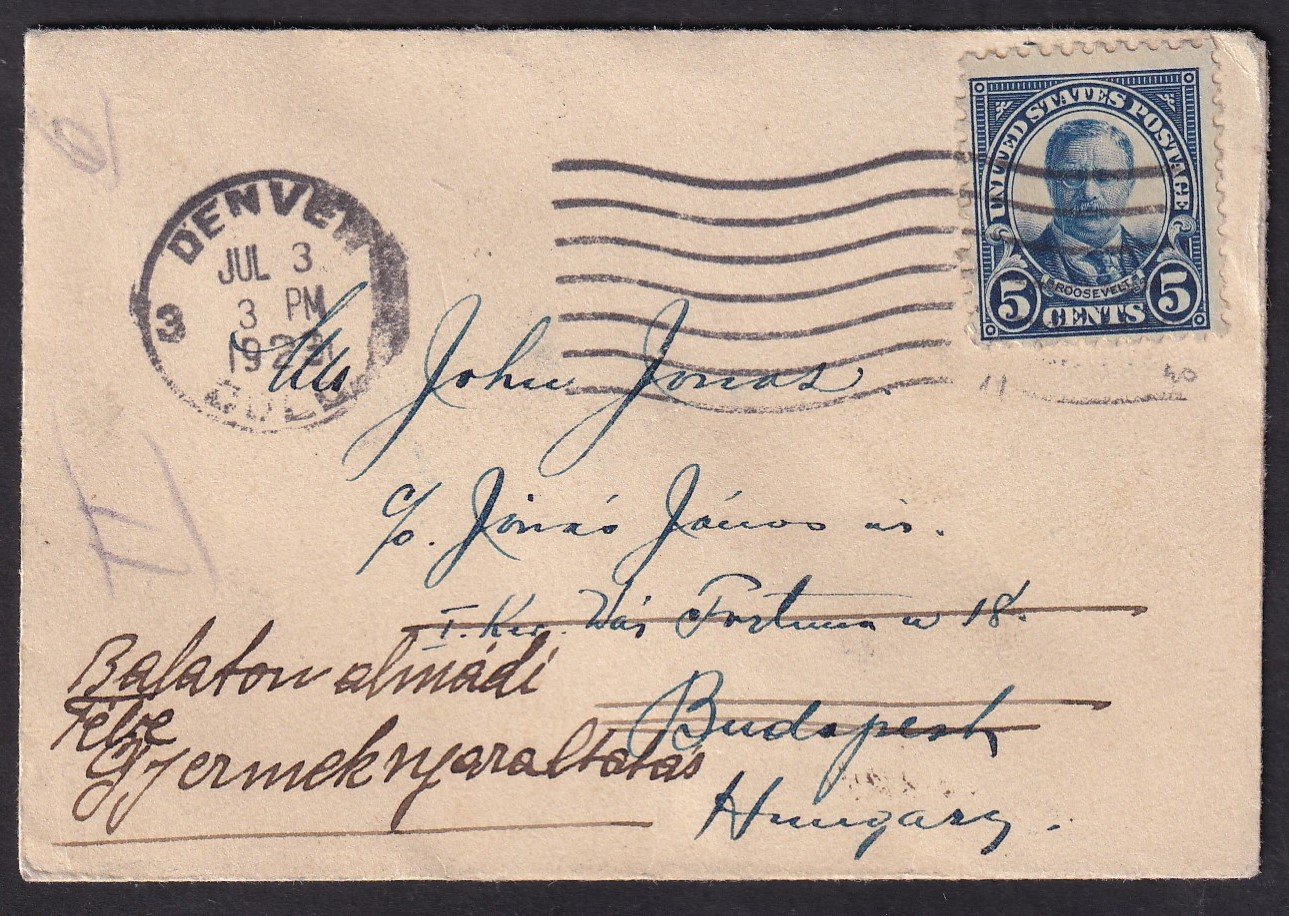 DENVER
JUL 3
3 PM
1923
COLO
3
UNITED STATES POSTAGE
ROOSEVELT
5 CENTS 5
11 40
John Jonas
c/o. Jónás János úr.
I. Ker. Vár Fortuna u 18.
Budapest
Hungary.
Balaton almádi
Gyermeknyaraltatás